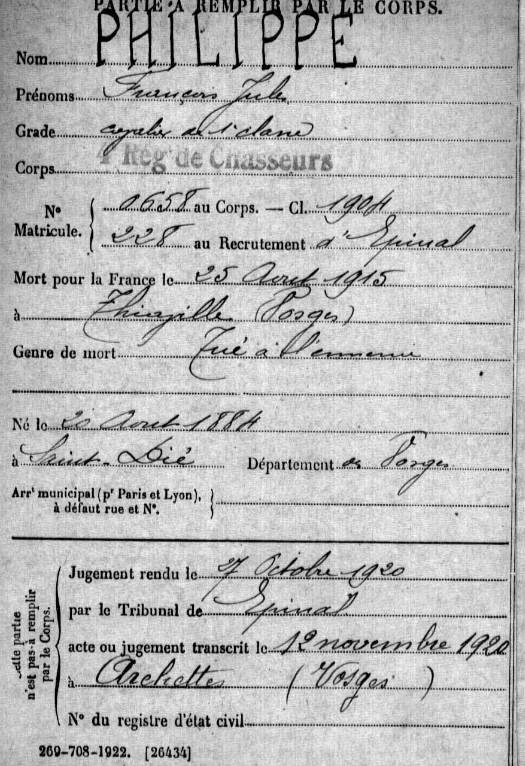 PARTIE À REMPLIR PAR LE CORPS.
PHILIPPE
Nom
Prénoms François Jules
Grade cavalier de 1e classe
Corps Rég' de Chasseurs
N° Matricule. 0658 au Corps. — Cl. 1904
228 au Recrutement d'Epinal
Mort pour la France le 25 Aout 1915
à (Vosges)
Genre de mort Tué à l'ennemi
Né le 20 Aout 1884
à Saint-Dié Département des Vosges
Arrt municipal (pr Paris et Lyon),
à défaut rue et N°.
cette partie
n'est pas à remplir
par le Corps.
Jugement rendu le 27 Octobre 1920
par le Tribunal de Epinal
acte ou jugement transcrit le 12 novembre 1920
à Archettes (Vosges)
N° du registre d'état civil
269-708-1922. [26434]